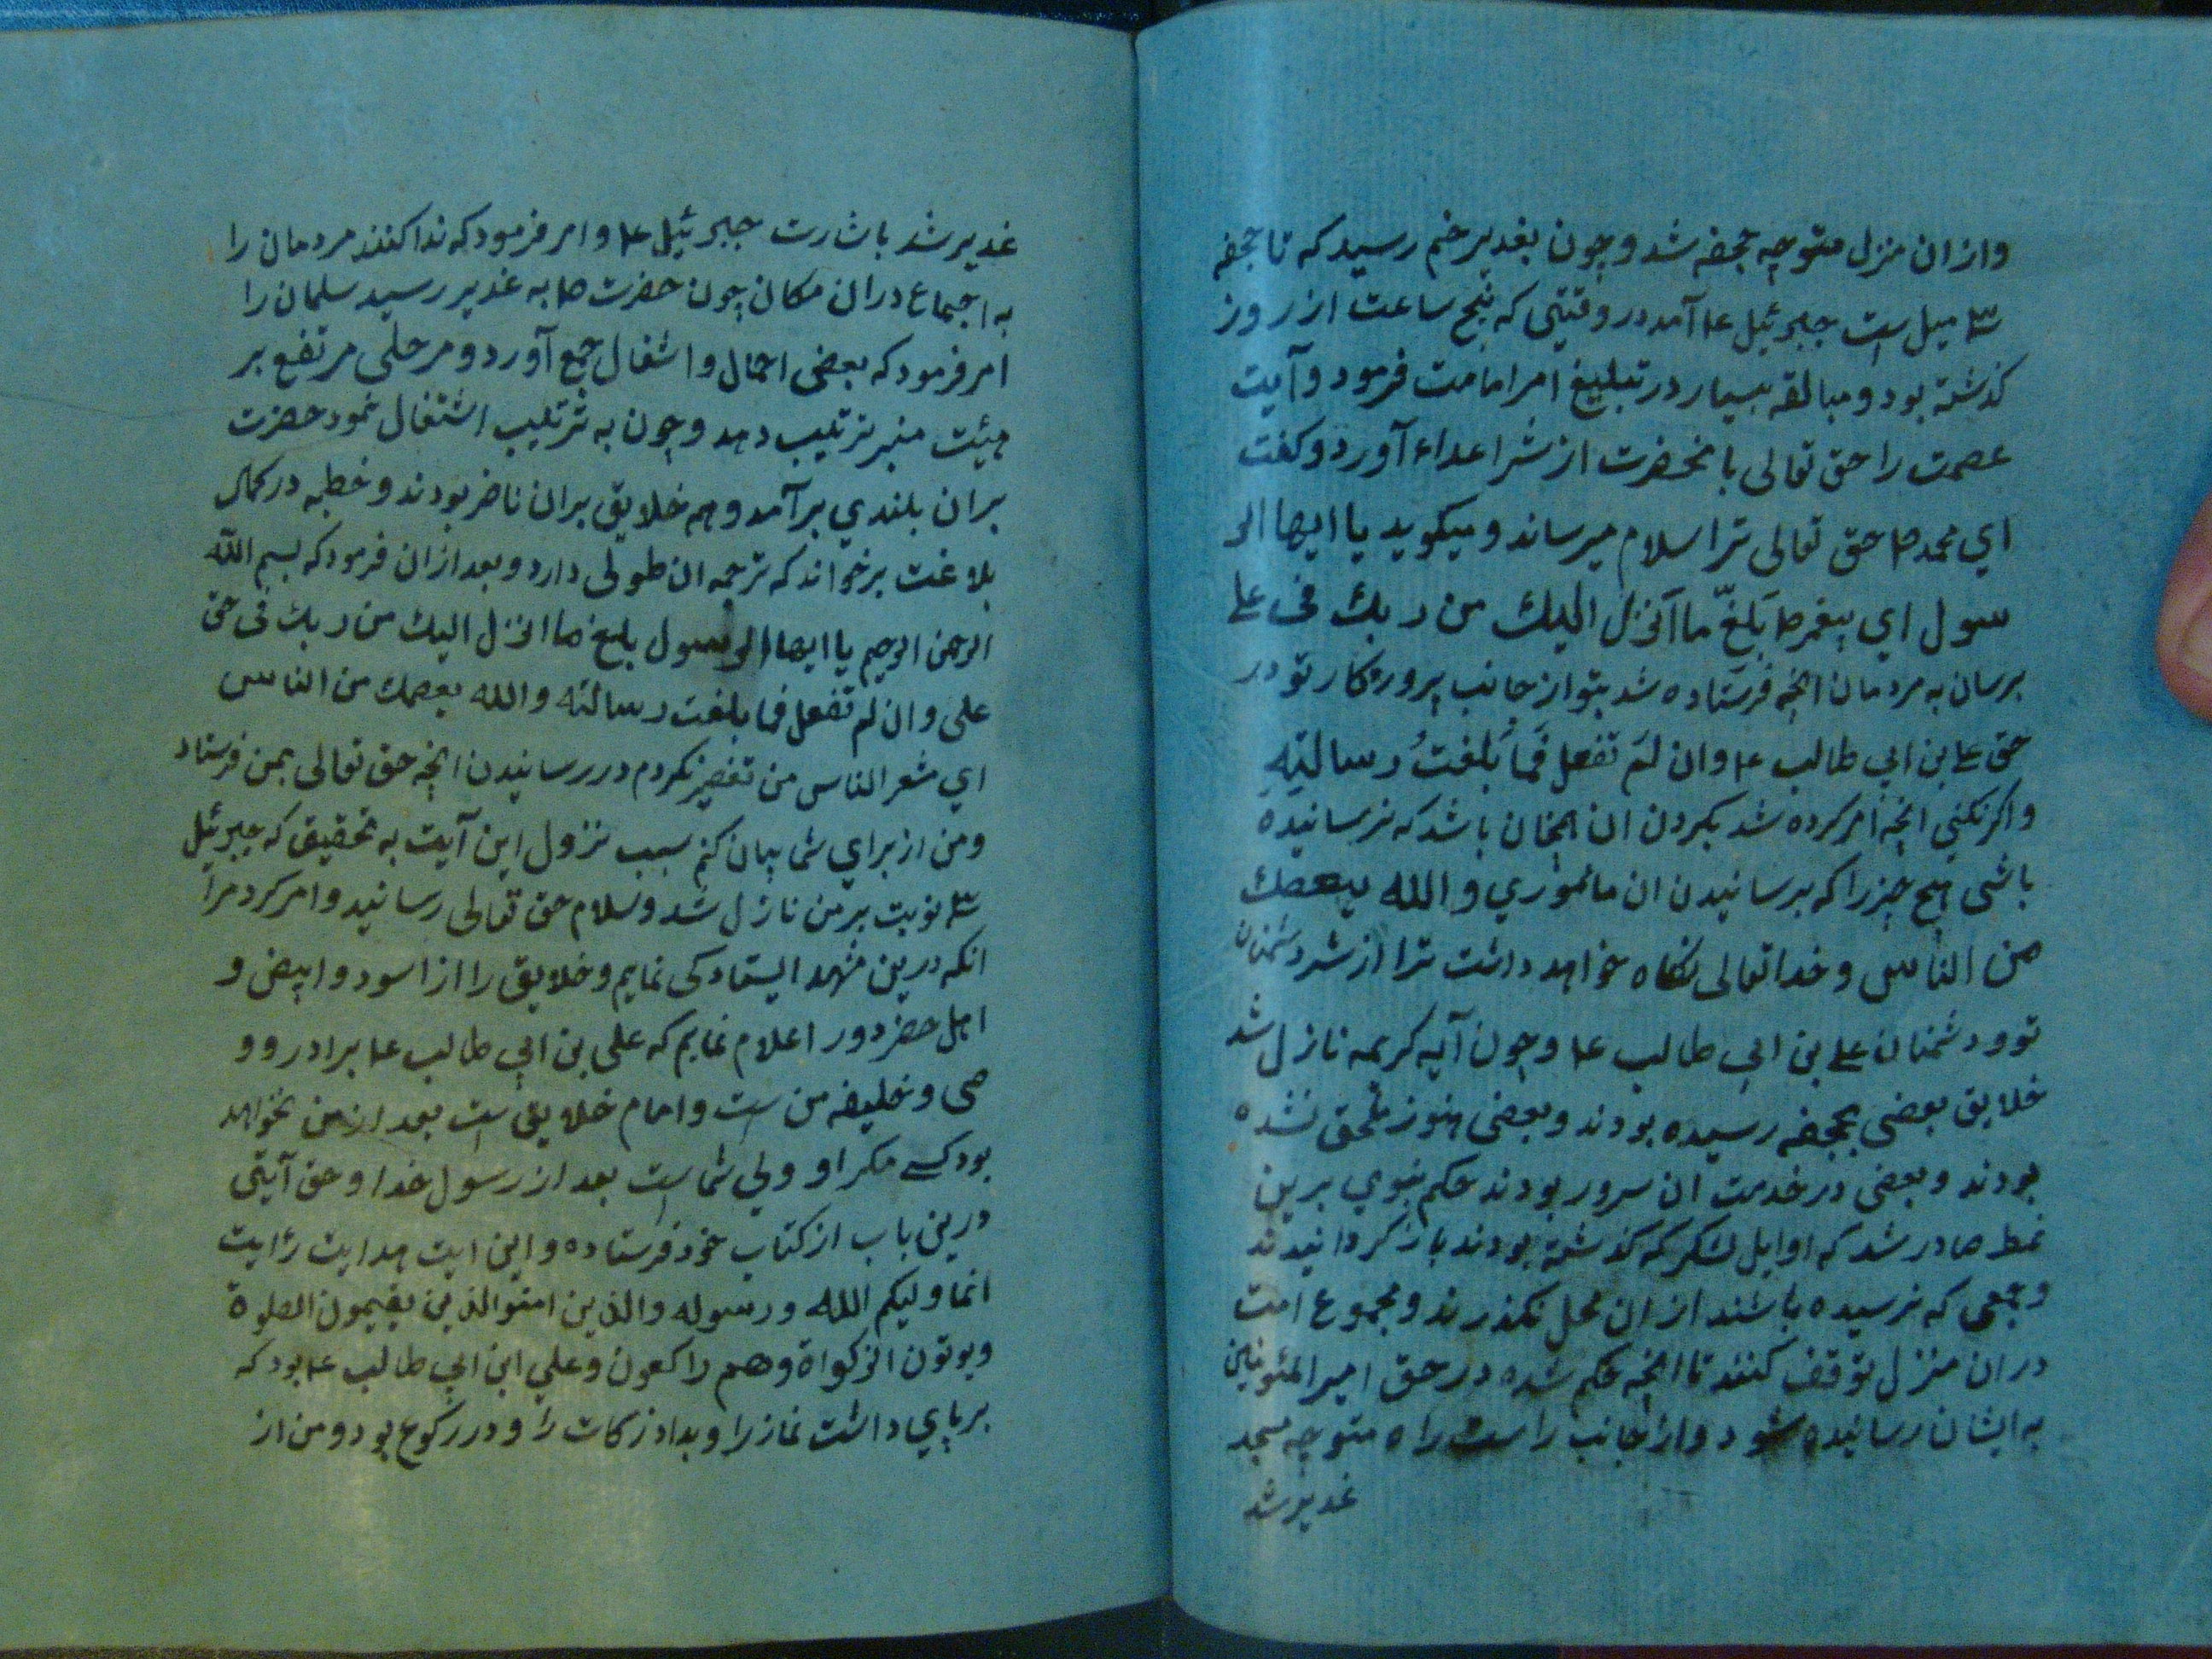 وازان منزل متوجه جحفه شد و چون بغدیر خم رسید که تا جحفه
سه میل است جبرئیل ع آمد در وقتیی که پنج ساعت از روز
کذشته بود و مبالغه بسیار در تبلیغ امر امامت فرمود و آیت
عصمت را حق تعالی بانحضرت از شر اعداء آورد و کفت
اي محمد ص حق تعالی ترا سلام میرساند و میکوید یا ایها الر
سول اي پیغمبر ص بَلّغ ما اُنزل الیك من ربك فی علی
برسان به مردمان انچه فرستاده شد بتو از جانب پروردکار تو در
حق علی بن ابي طالب ع و ان لَم تفعل فَما بَلغتُ رسالتِهِ
و اکر نکني انچه امر کرده شد بکردن ان همچنان باشد که نرسانیده
باشی هیچ چیز را که برسانیدن ان ماموري و الله یعصمك
من الناس و خدا تعالی نکاه خواهد داشت ترا از شر دشمنان
تو و دشمنان علی بن ابي طالب ع و چون آیه کریمه نازل شد
خلایق بعضی بجحفه رسیده بودند و بعضی هنوز ملحق نشده
بودند و بعضی در خدمت ان سرور بودند حکم نبوي برین
نمط صادر شد که اوایل لشکر که کذشته بودند باز کردانیدند
و جمعی که نرسیده باشند از ان محل نکذرند و مجموع امت
در ان منزل توقف کنند تا انچه حکم شده در حق امیر المئونین
به ایشان رسانیده شود و از جانب راست راه متوجه مسجد
غدیر شد
غدیر شد باشارت جبرئیل ع و امر فرمود که ندا کنند مردمان را
به اجتماع دران مکان چون حضرت ص به غدیر رسید سلمان را
امر فرمود که بعضی احمال و اشغال جمع آورد و مرحلی مرتفع بر
هیئت منبر ترتیب دهد و چون به ترتیب اشتغال نمود حضرت
بران بلندي برآمد و هم خلایق بران ناضر بودند و خطبه در کمال
بلاغت برخواند که ترجمه ان طولی دارد و بعد ازان فرمود که بسم الله
الرحمن الرحیم یا ایها الرسول بلغ ما انزل الیك من ربك فی حق
علی و ان لم تفعل فما بلغت رسالته و الله یعصمك من الناس
اي مشعر الناس من تقصیر نکردم در رسانیدن انچه حق تعالی بمن فرستاد
و من از براي شما بیان کنم سبب نزول این آیت به تحقیق که جبرئیل
سه نوبت بر من نازل شد و سلام حق تعالی رسانید و امر کرد مرا
انکه درین مشهد ایستادکی نمایم و خلایق را از اسود و ابیض و
اهل حضر دور اعلام نمایم که علی بن ابي طالب ع برادر و و
صی و خلیفه من است و امام خلایق است بعد از من نخواهد
بود کسے مکر او و ولي شما است بعد از رسول خدا و حق آیتی
درین باب از کتاب خود فرستاده و این ایت هدایت رایت
انما ولیکم الله و رسوله و الذین امنو الذین یقیمون الصلوة
و یوتون الزکواة و هم راکعون و علي ابن ابي طالب ع بود که
بر پاي داشت نماز را و بداد زکات را و در رکوع بود و من از